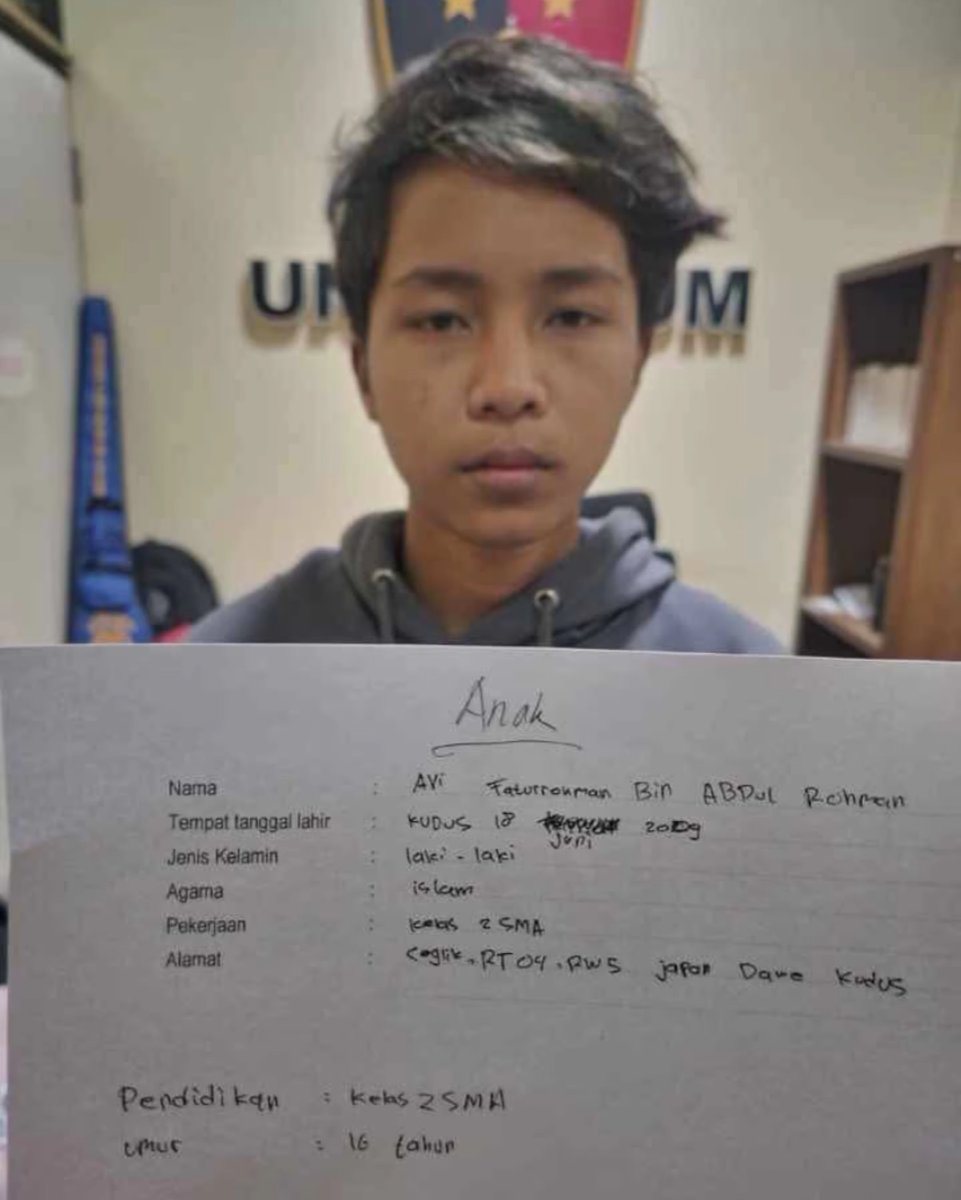 UM
Anak
Nama : AVi Faturrohman Bin ABDul Rohman
Tempat tanggal lahir : KUDUS 18 Juni 2009
Jenis Kelamin : laki - laki
Agama : islam
Pekerjaan : kelas 2 SMA
Alamat : RT04 . RW5 japan Dawe Kudus
Pendidikan : Kelas 2 SMA
umur : 16 tahun